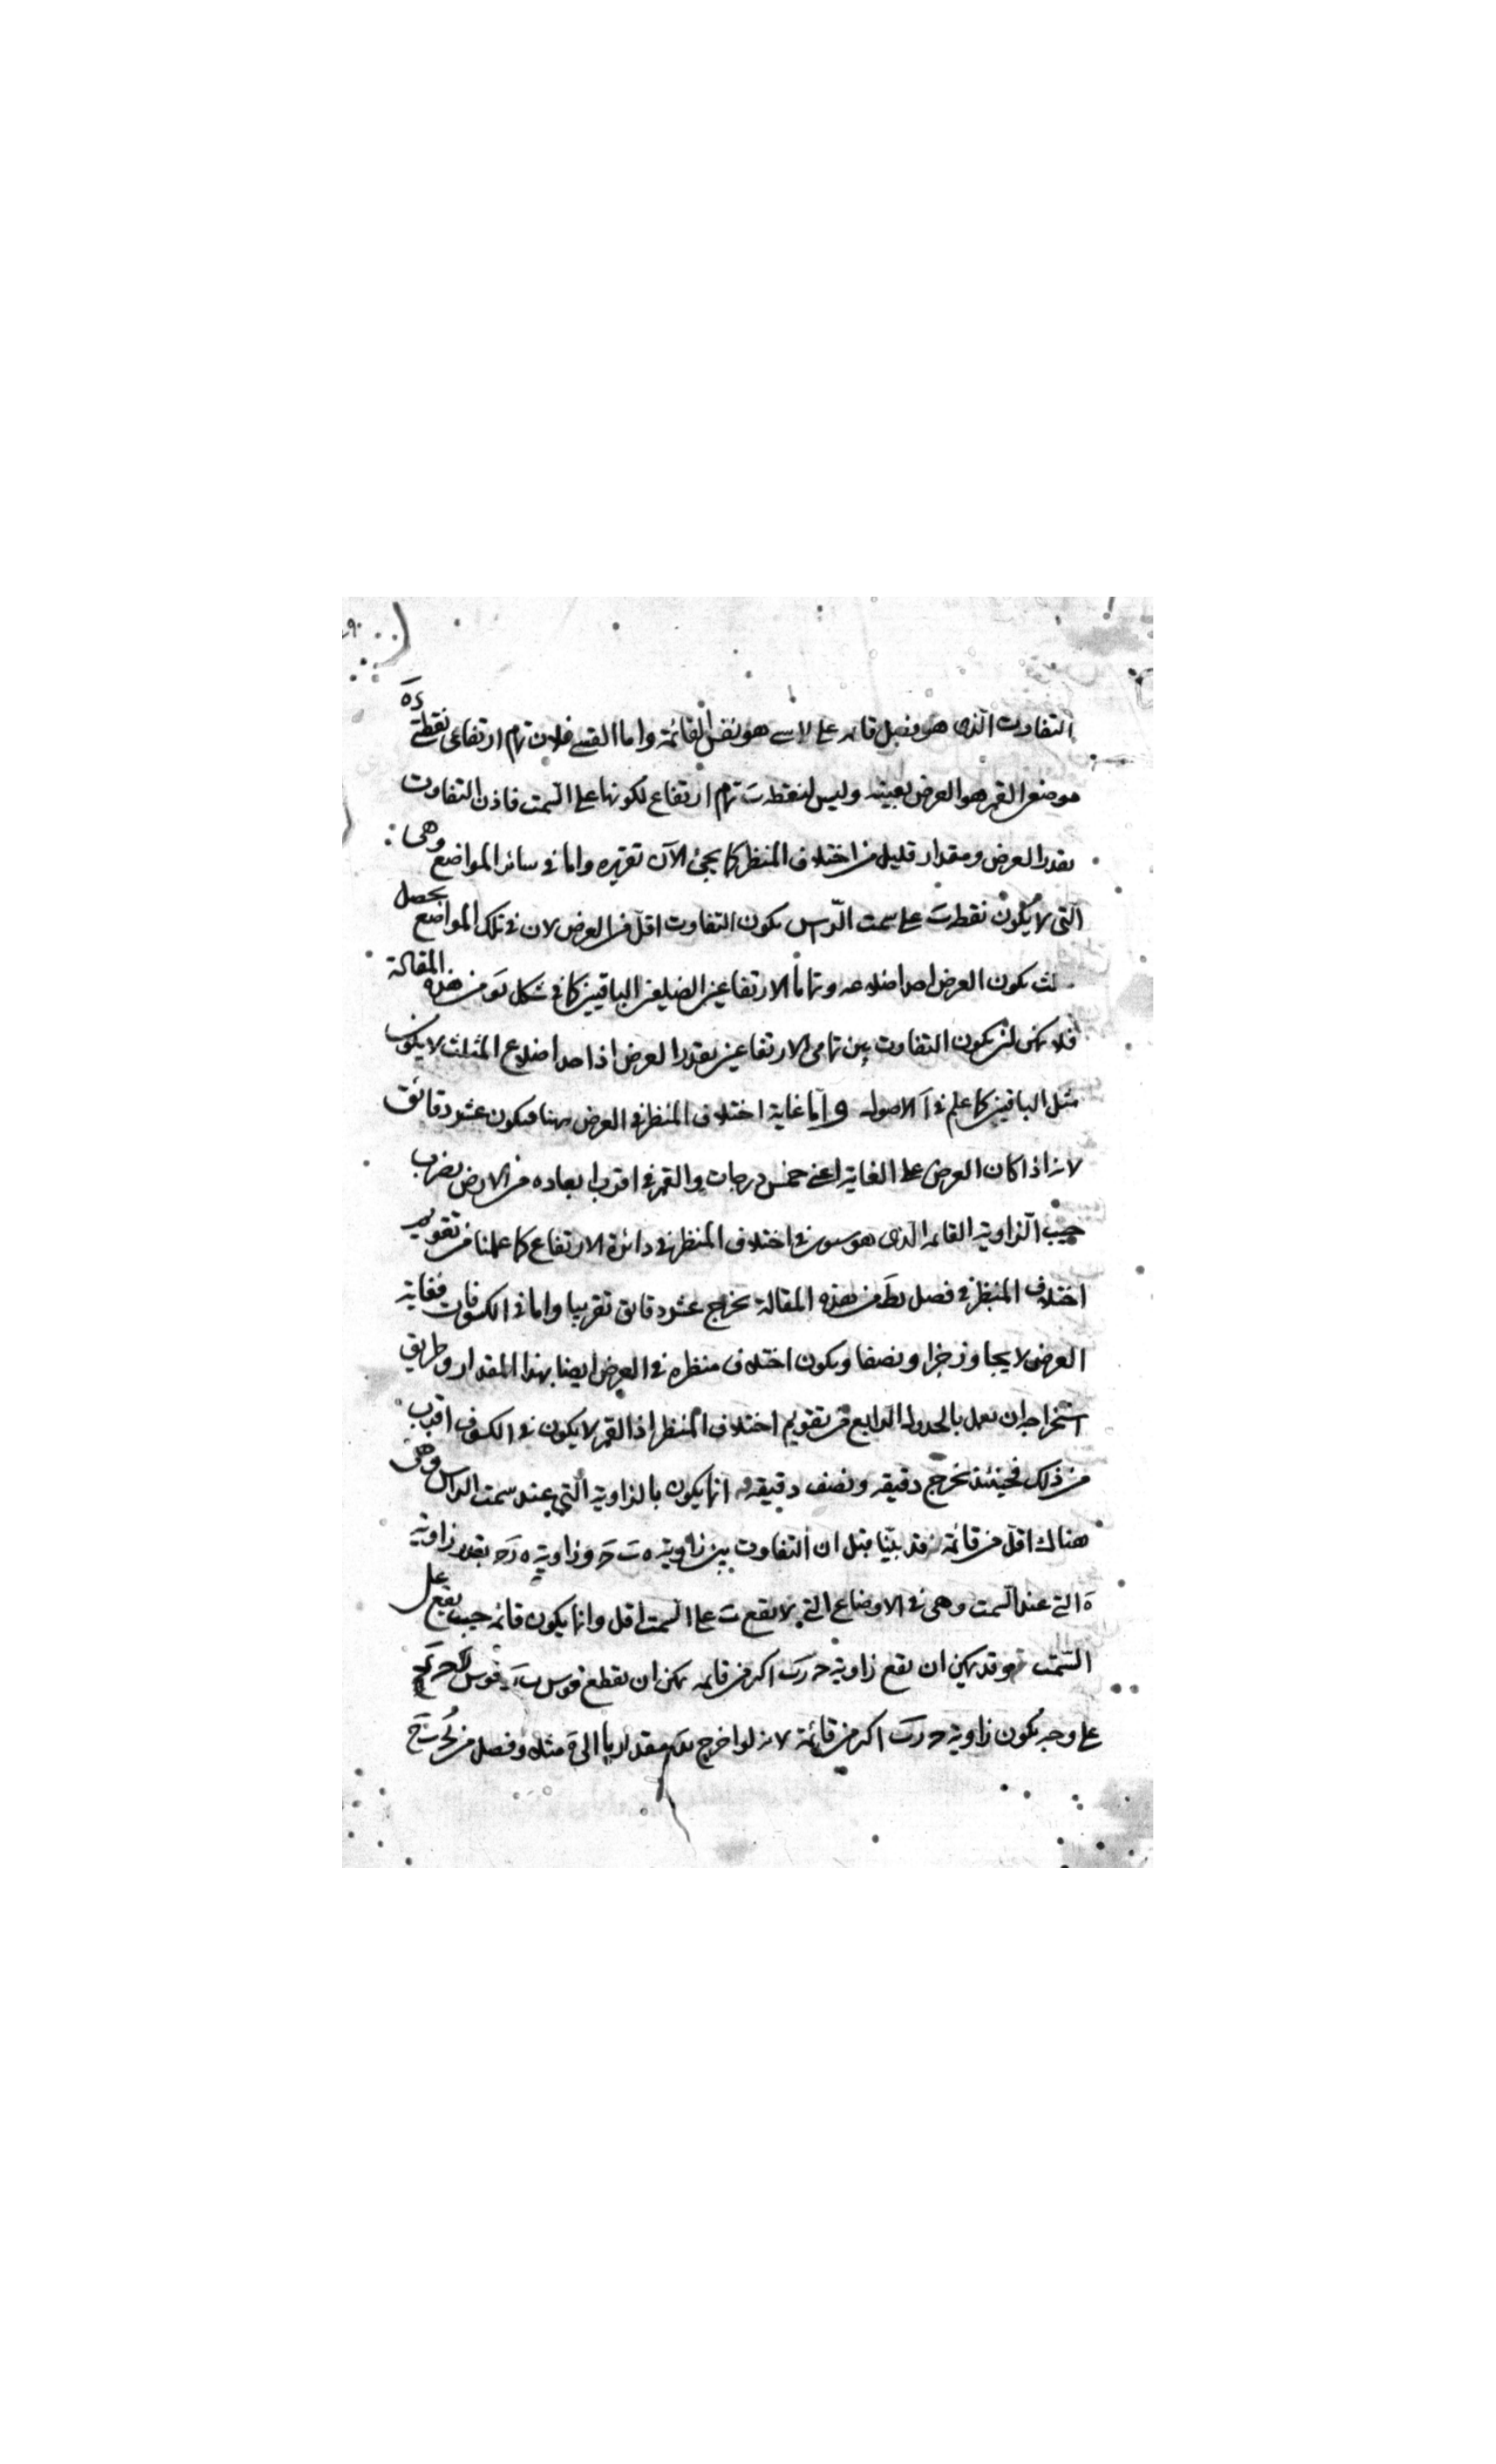 التفاوت الذى هو فضل قائمه على لاسى هو نفس القائمة واما القسى فلان تمام ارتفاعى نقطتى دَ هَ
موضعى القمر هو العرض بعينه وليس لنقطه بَ تمام ارتفاع لكونها على السمت فاذن التفاوت
بقدر العرض ومقدار قليل من اختلاف المنظر كما يجئ الآن تقريره واما فى سائر المواضع وهى
التى لا يكون نقطه بَ على سمت الرأس يكون التفاوت اقل من العرض لان فى تلك المواضع يحصل
مثلث يكون العرض احد اضلاعه وتماما الارتفاعين الضلعين الباقيين كما فى شكل من هذه المقالة
فلا يمكن ان يكون التفاوت بين تمامى الارتفاعين بقدر العرض اذ احد اضلاع المثلث لا يكون
مثل الباقيين كما علم فى آ الاصول واما غاية اختلاف المنظر فى العرض ههنا فيكون عشر دقائق
لانه اذا كان العرض على الغاية اعنى خمس درجات والقمر فى اقرب ابعاده من الارض يضرب
جيب الزاوية القائمه الذى هو ستون فى اختلاف المنظر فى دائرة الارتفاع كما علمنا من تقويم
اختلاف المنظر فى فصل يط من هذه المقالة يخرج عشر دقائق تقريبا واما فى الكسوفات فغاية
العرض لا يجاوز جزا ونصفا ويكون اختلاف منظره فى العرض ايضا بهذا المقدار وطريق
استخراجه ان نعمل بالجدول الرابع من تقويم اختلاف المنظر اذ القمر لا يكون فى الكسوف اقرب
من ذلك فحينئذ يخرج دقيقه ونصف دقيقه انما يكون بالزاوية التى عند سمت الراس وهى
هناك اقل من قائمة فقد بيّنا قبل ان التفاوت بين زاويتى ه بَ حَ وزاويتى ه دَ حَ بقدر زاوية
هَ التى عند السمت وهى فى الاوضاع التى لا يقع بَ على السمت اقل وانما يكون قائمه حيث يقع على
السمت وقد يمكن ان يقع زاوية حَ دَ بَ اكبر من قائمه يمكن ان يقطع قوس قوس
على وجه يكون زاوية حَ دَ بَ اكبر من قائمة لانه لو اخرج مقدار ما الى هَ مثلا وفصل من